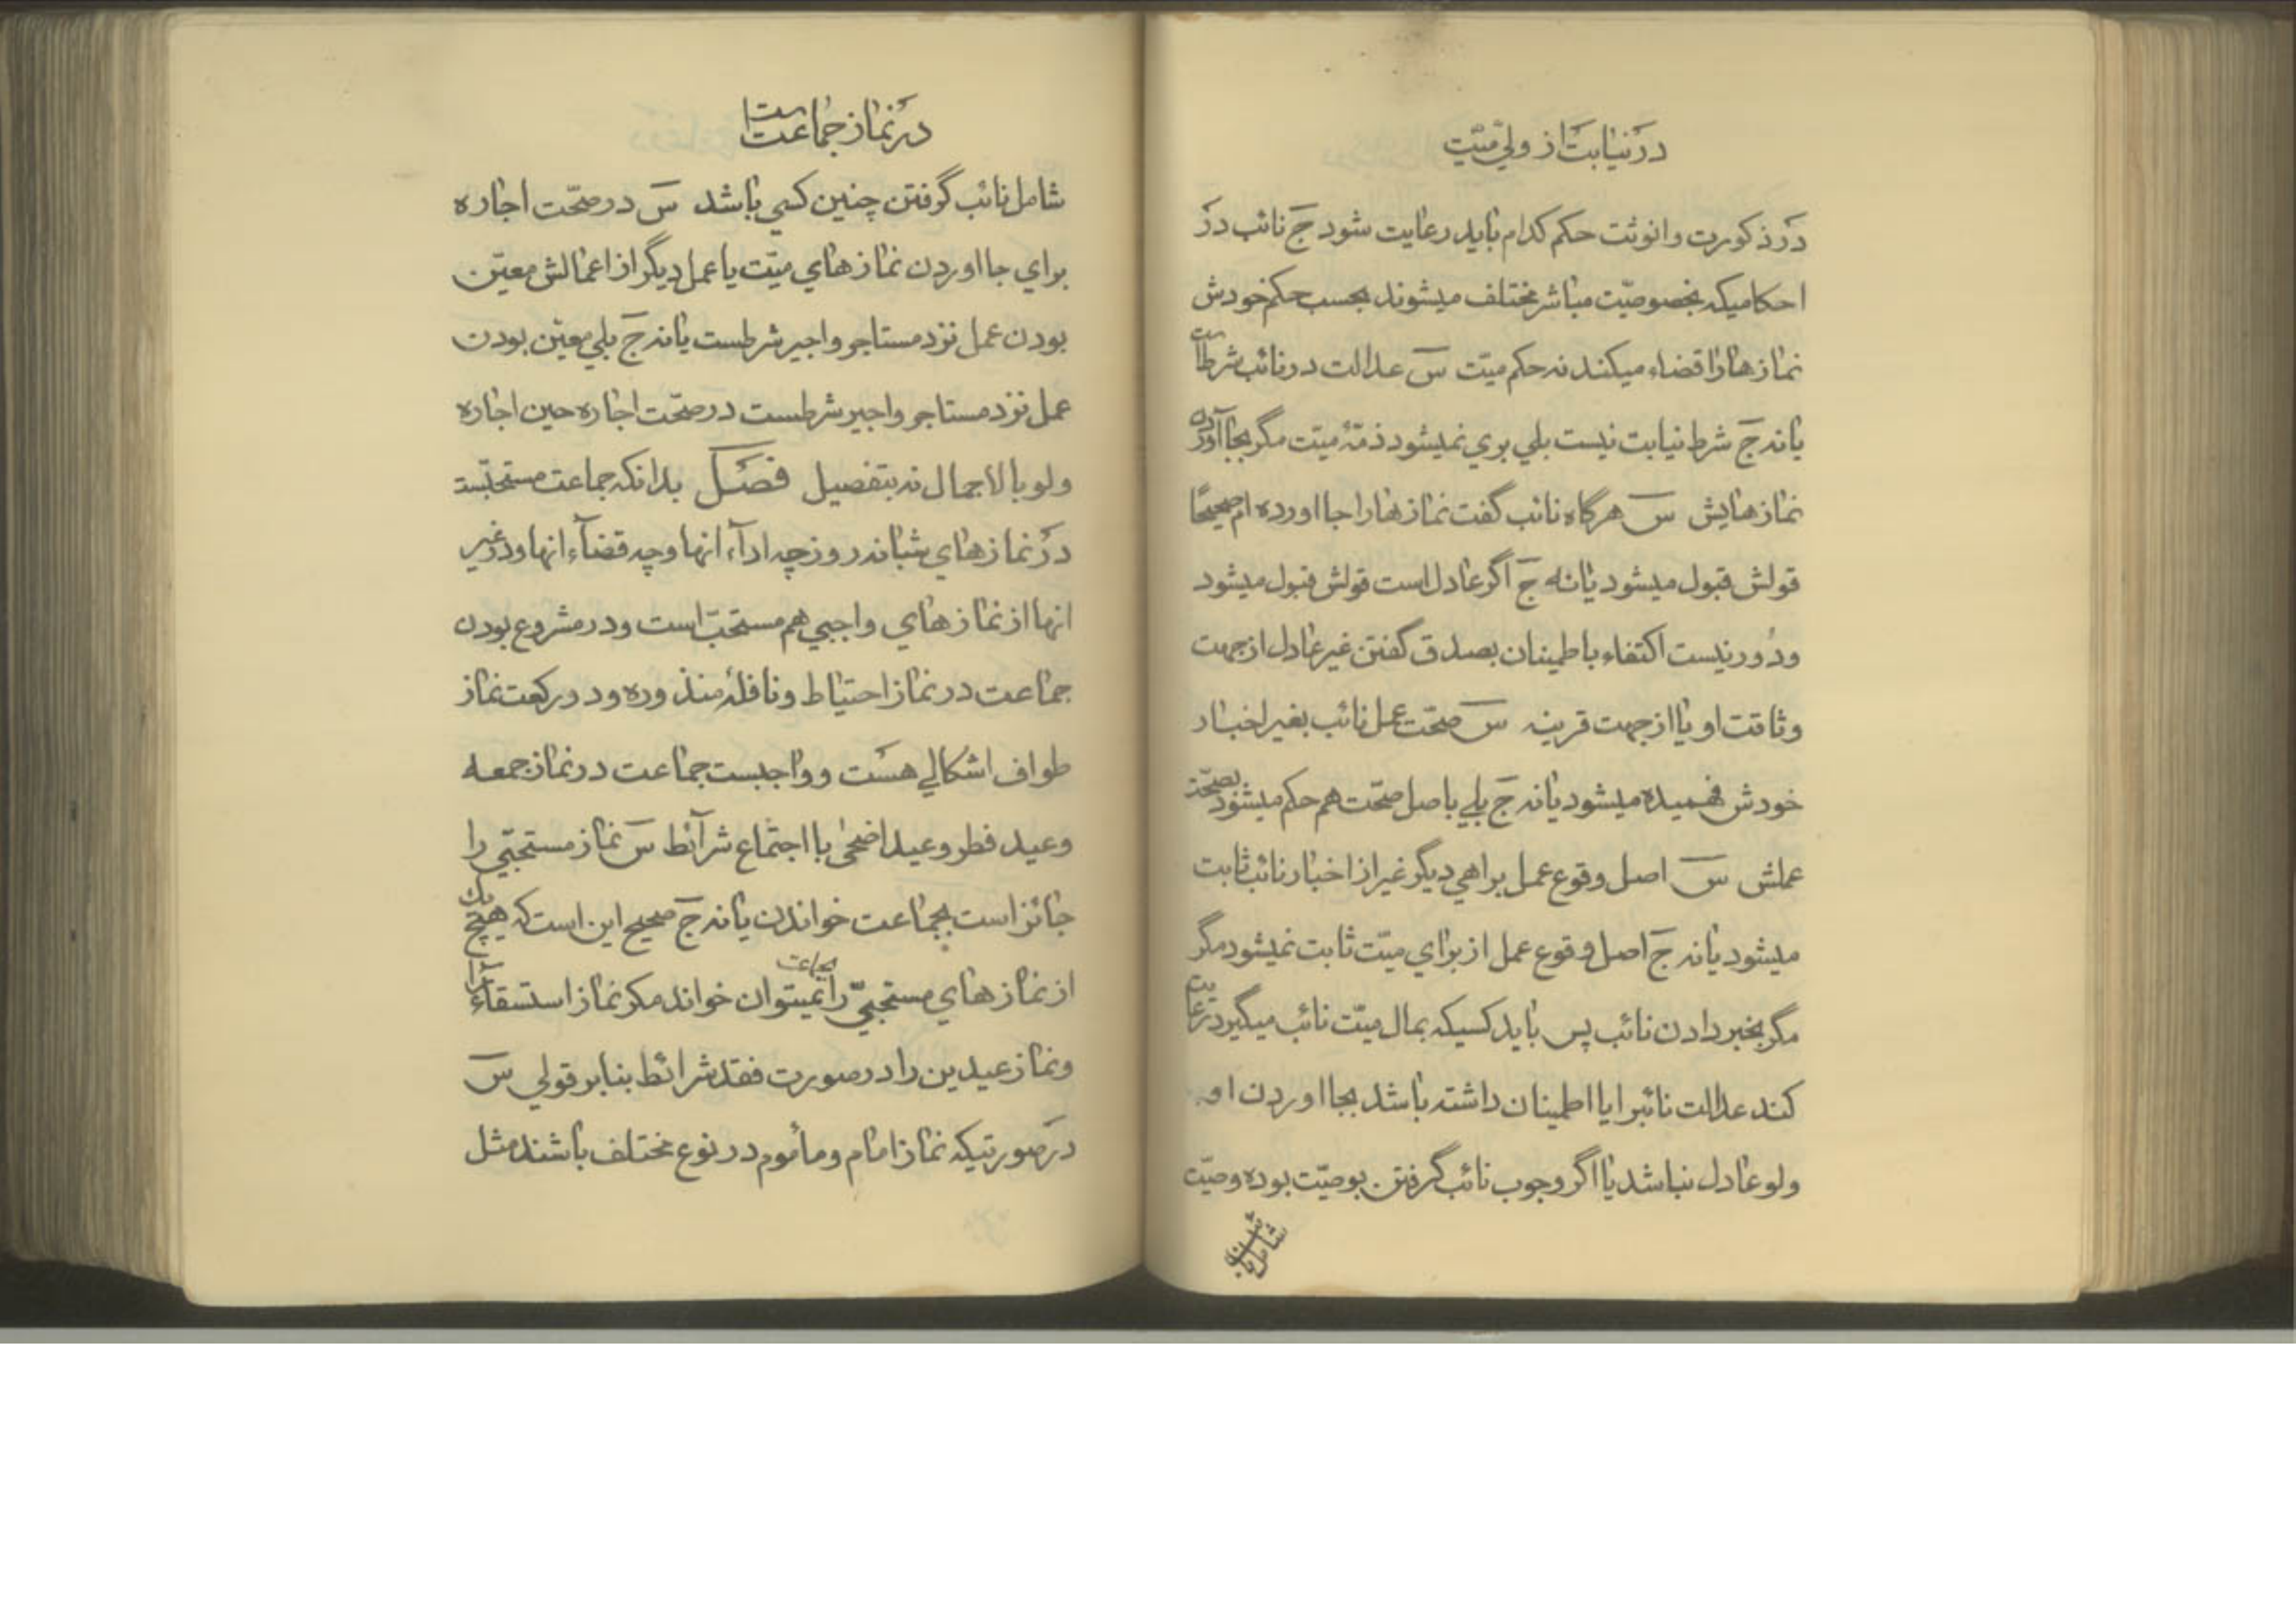 در نیابت از ولیّ میّت
در ذکوریت و انوثت حکم کدام باید رعایت شود ج نائب در
احکامیکه بخصوصیّت مباشر مختلف میشوند بحسب حکم خودش
نمازها را قضاء میکند نه حکم میّت س عدالت در نائب شرط است
یا نه ج شرط نیابت نیست بلی بری نمیشود ذمّهٔ میّت مگر بجا آوردن
نمازهایش س هرگاه نائب گفت نمازها را جا اورده ام صحیحًا
قولش قبول میشود یا نه ج اگر عادل است قولش قبول میشود
و دور نیست اکتفاء باطمینان بصدق گفتن غیر عادل از جهت
وثاقت او یا از جهت قرینه س صحّت عمل نائب بغیر اخبار
خودش فهمیده میشود یا نه ج بلی باصل صحّت هم حکم میشود بصحّت
عملش س اصل وقوع عمل براهی دیگر غیر از اخبار نائب ثابت
میشود یا نه ج اصل وقوع عمل از برای میّت ثابت نمیشود مگر
مگر بخبر دادن نائب پس باید کسیکه بمال میّت نائب میگیرد رعایت
کند عدالت نائبرا یا اطمینان داشته باشد بجا اوردن او
ولو عادل نباشد یا اگر وجوب نائب گرفتن بوصیّت بوده وصیّت
شامل
در نماز جماعت است
شامل نائب گرفتن چنین کسی باشد س در صحّت اجاره
برای جا اوردن نمازهای میّت یا عمل دیگر از اعمالش معیّن
بودن عمل نزد مستاجر و اجیر شرطست یا نه ج بلی معیّن بودن
عمل نزد مستاجر و اجیر شرطست در صحّت اجاره حین اجاره
ولو بالاجمال نه بتفصیل فصل بدانکه جماعت مستحبّست
در نمازهای شبانه روز چه اداء انها و چه قضاء انها و در غیر
انها از نمازهای واجبی هم مستحبّ است و در مشروع بودن
جماعت در نماز احتیاط و نافلهٔ منذوره و دو رکعت نماز
طواف اشکالی هست و واجبست جماعت در نماز جمعه
و عید فطر و عید اضحی با اجتماع شرآئط س نماز مستحبّی را
جائز است بجماعت خواندن یا نه ج صحیح این است که هیچ یک
از نمازهای مستحبّی را بجماعت نمیتوان خواند مکر نماز استسقاء را
و نماز عیدین را در صورت فقد شرائط بنابر قولی س
در صورتیکه نماز امام و مأموم در نوع مختلف باشند مثل